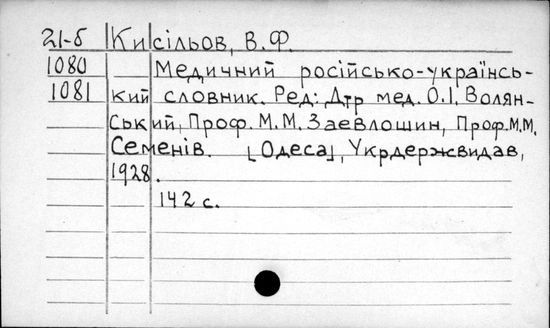 21-б Кисільов, В.Ф.
1080 Медичний російсько-українсь-
1081 кий словник. Ред: Д-тр мед. О.І. Волян-
ський, Проф. М.М. Заевлошин, Проф. М.М.
Семенів. [Одеса], Укрдержвидав,
1928.
142 с.